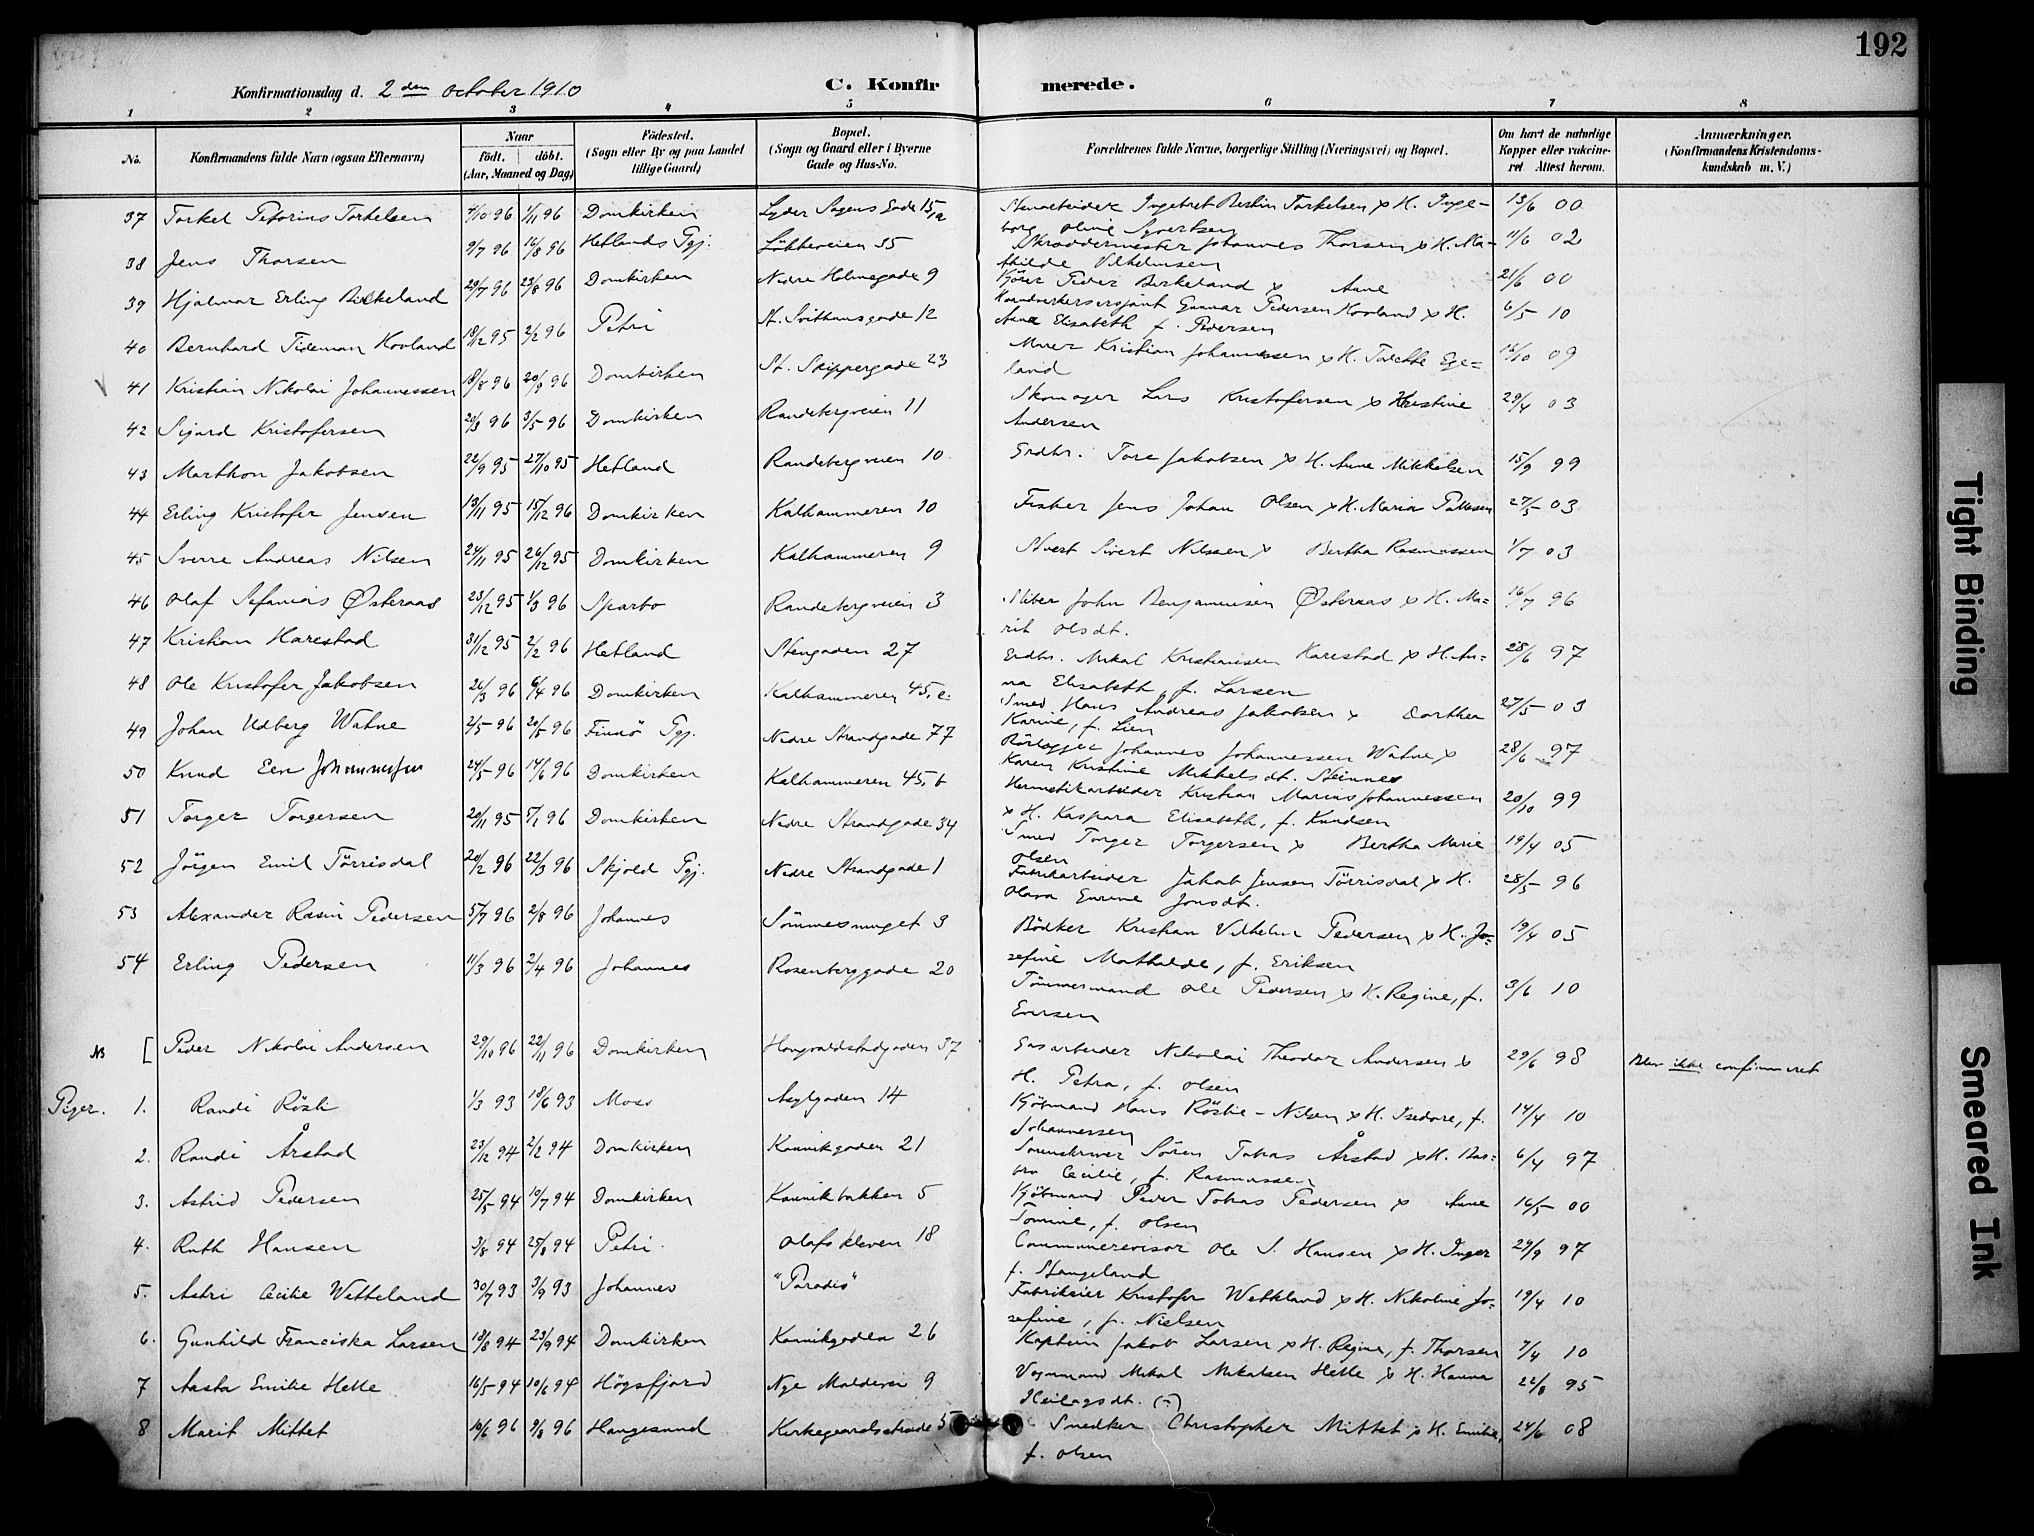 192
Konfirmationsdag d. 2 den october 1910 C. Konfirmerede.
1 2 3 4 5 6 7 8
No. Konfirmandens fulde Navn (ogsaa Efternavn) Naar födt. döbt. (Aar, Maaned og Dag) Födested. (Sogn eller By og paa Landet tillige Gaard) Bopæl. (Sogn og Gaard eller i Byerne Gade og Hus-No. Forældrenes fulde Navne, borgerlige Stilling (Næringsvei) og Bopæl. Om havt de naturlige Kopper eller vaccineret Attest herom. Anmærkninger. (Konfirmandens Kristendomskundskab m. V.)
37 Torkel Petorius Torkelsen 4/10 96 1/11 96 Domkirken Lyder Sagens Gade 15,a Ingebret Berlin Torkelsen x H. Inge- 13/6 00
borg Oline Syvertsen
38 Jens Thorsen 9/7 96 16/8 96 Hetlands Pgj. Løkkeveien 35 Skræddermester Johannes Thorsen x H. Ma- 11/6 02
thilde Vilhelmsen
39 Hjalmar Erling Birkeland 29/7 96 23/8 96 Domkirken Nedre Holmegade 9 Kjører Peder Birkeland x Anne 21/6 00
40 Bernhard Tideman Hovland 18/12 95 2/2 96 Petri St. Svithunsgade 12 Gunnar Pedersen Hovland x H. 6/5 10
Anna Elisabeth f. Pedersen
41 Kristian Nikolai Johannessen 18/8 96 20/9 96 Domkirken St. Skippergade 23 Murer Kristian Johannessen x H. Tolette Ege- 16/10 09
land
42 Sigurd Kristofersen 20/3 96 3/5 96 Domkirken Randebergveien 11 Skomager Lars Kristofersen x Kristine 29/4 03
Andersen
43 Marthon Jakobsen 22/9 95 27/10 95 Hetland Randebergveien 10 Gadbr. Tore Jakobsen x H. Anne Mikkelsen 15/9 99
44 Erling Kristofer Jensen 13/11 95 15/12 96 Domkirken Kalhammeren 10 Fisker Jens Johan Olsen x H. Maria Pallesen 27/5 03
45 Sverre Andreas Nilsen 24/11 95 26/12 95 Domkirken Kalhammeren 9 Sivert Nilssen x Bertha Rasmussen 1/7 03
46 Olaf Østeraas 23/12 95 1/3 96 Sparbo Randebergveien 3 Sliber John Benjaminsen Østeraas x H. Ma- 16/7 96
rit Olsdt.
47 Kristian Harestad 31/12 95 2/2 96 Hetland Stengaden 27 Mikal Kristiansen Harestad x H. An- 28/6 97
na Elisabeth, f. Larsen
48 Ole Kristofer Jakobsen 26/3 96 6/4 96 Domkirken Kalhammeren 45,c. Smed Hans Andreas Jakobsen x Dorthea 27/5 03
Karine, f. Lien
49 Johan Udberg Watne 2/5 96 20/5 96 Finnø Pgj. Nedre Strandgade 77 Rörlægger Johannes Johannessen Watne x 28/6 97
Karen Kristine Mikkelsdt. Steinnes
50 Knud Een Johannessen 24/5 96 14/6 96 Domkirken Kalhammeren 45,b Hermetikarbeider Kristian Marius Johannessen 20/10 99
x H. Kaspara Elisabeth, f. Knudsen
51 Torger Torgersen 20/11 95 5/1 96 Domkirken Nedre Strandgade 34 Smed Torger Torgersen x Bertha Marie 19/4 05
Olsen
52 Jörgen Emil Törrisdal 20/2 96 22/3 96 Skjold Pgj. Nedre Strandgade 1 Fabrikarbeider Jakob Jensen Törrisdal x H. 28/5 96
Olava Jonsdt.
53 Alexander Rasin Pedersen 5/7 96 2/8 96 Johannes Sömmesmuget 3 Bödker Kristian Vilhelm Pedersen x H. Jo- 19/4 05
sefine Mathilde, f. Eriksen
54 Erling Pedersen 11/3 96 2/4 96 Johannes Rosenberggade 20 Tömmermand Ole Pedersen x H. Regine, f. 3/6 10
Eversen
NB [ Peder Nikolai Andersen 29/10 96 22/11 96 Domkirken 37 Gasarbeider Nikolai Theodor Andersen x 29/6 98 Blev ikke confirmeret
H. Petra, f. Olsen
Piger. 1. Randi Rösli 1/3 93 18/6 93 Moss Asylgaden 14 Kjöbmand Hans Röslie - Nilsen x H. Isedore, f. 14/4 10
Johannessen
2. Randi Årstad 23/12 94 2/2 94 Domkirken Kannikgaden 21 Sorenskriver Sören Tobias Årstad x H. Bar- 6/4 97
bra Cecilie, f. Rasmussen
3. Astrid Pedersen 25/5 94 10/7 94 Domkirken Kannikbakken 5 Kjöbmand Peder Tobias Pedersen x Anne 16/5 00
Tomine, f. Olsen
4. Ruth Hansen 3/8 94 25/8 94 Petri. Olafskleven 18 Communerevisor Ole S. Hansen x H. Inger 29/9 97
f. Stangeland
5. Astri Cecilie Wetteland 30/7 93 3/9 93 Johannes "Paradis" Fabrikeier Kristofer Wetteland x H. Nikoline Jo- 19/4 10
sefine, f. Nielsen
6. Gunhild Franciska Larsen 18/8 94 23/9 94 Domkirken Kannikgaden 26 Kaptein Jakob Larsen x H. Regine, f. Thorsen 7/4 10
7 Aasta Emilie Helle 16/5 94 10/6 94 Högsfjord Nye Maldevei 9 Vognmand Mikal Mikalsen Helle x H. Hanna 22/8 95
8 Marit Mittet 10/6 96 9/8 96 Haugesund Kirkegaardsstræde 5 Snedker Christopher Mittet x H. Emilie, 24/6 08
f. Olsen
Tight Binding
Smeared Ink